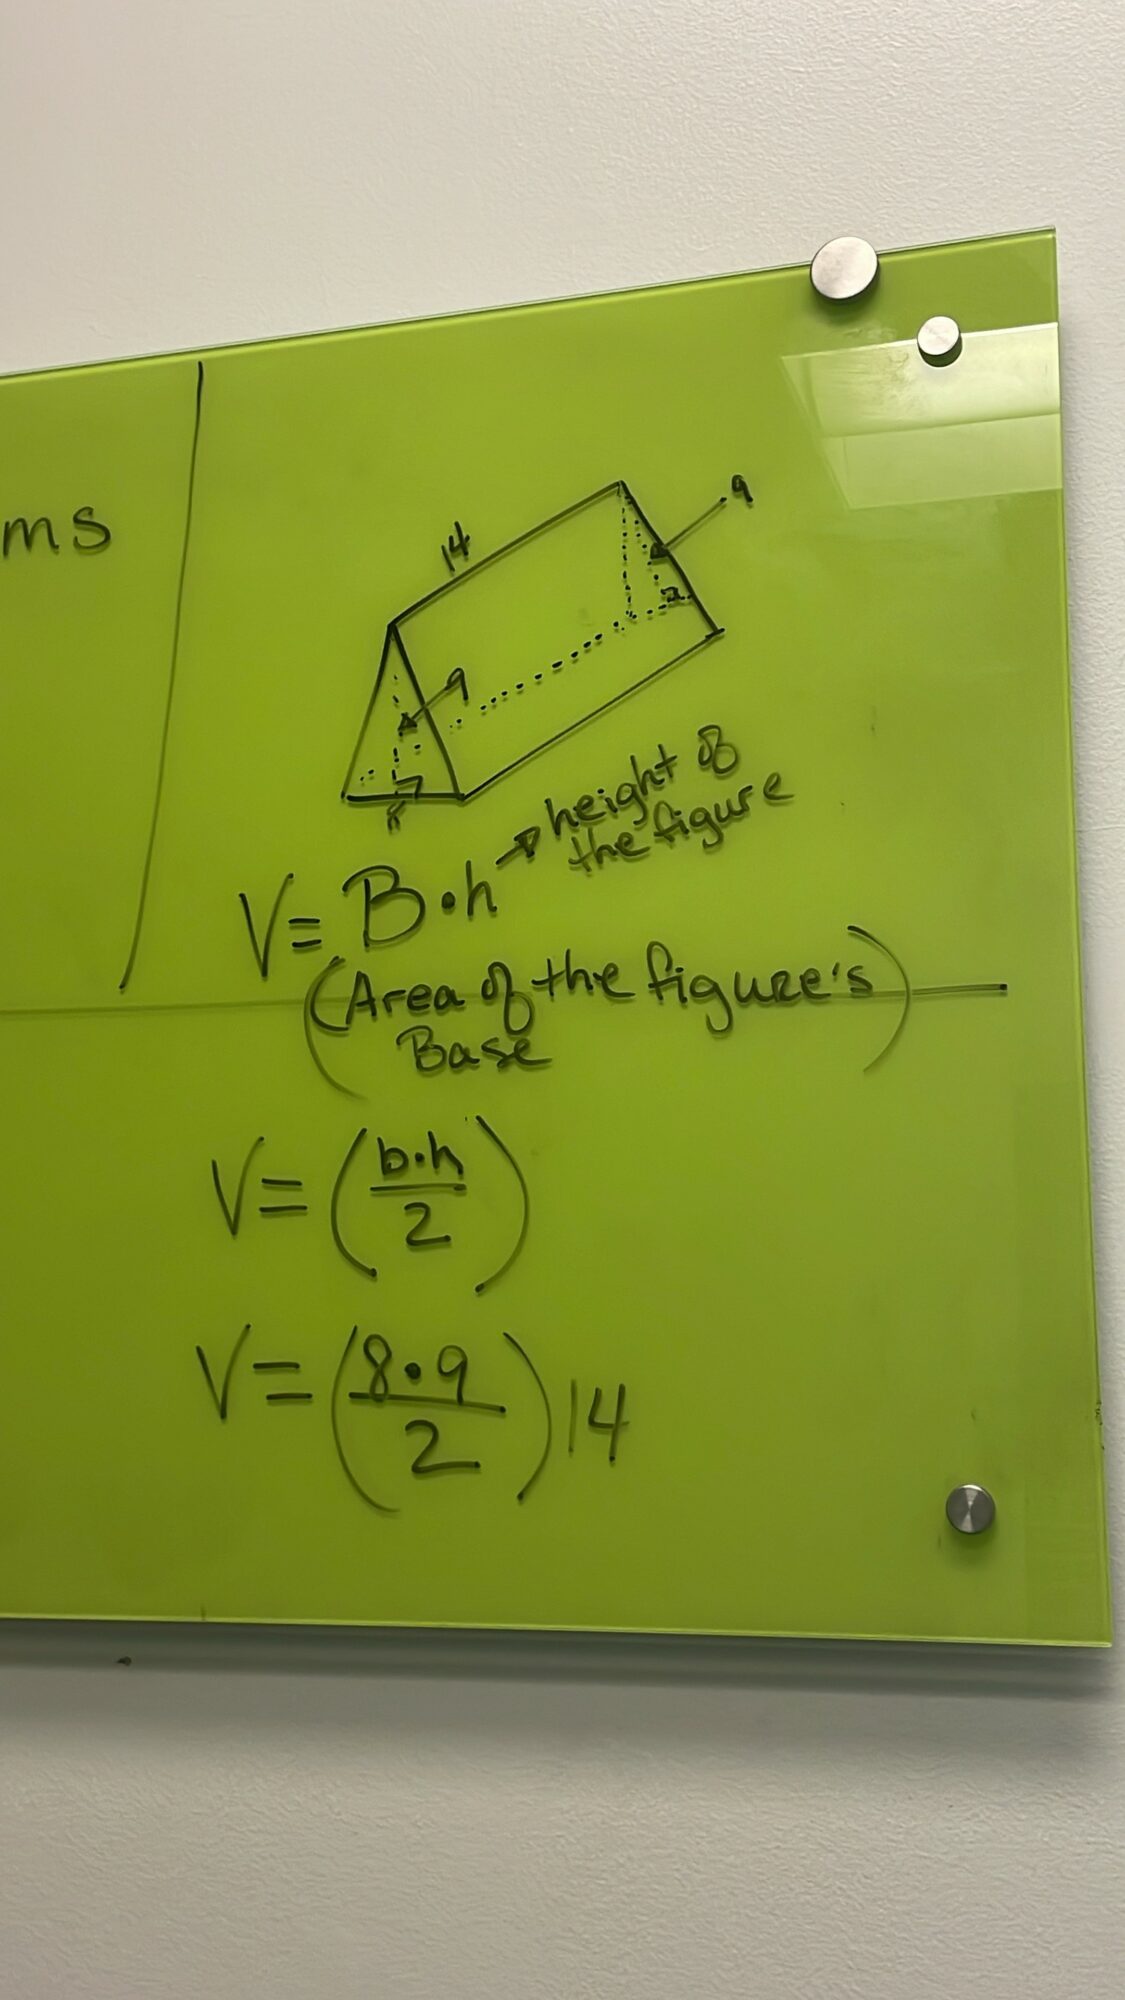 ms
14
9
9
8
V = B·h → height of
the figure
(Area of the figure's
Base)
V = (b·h/2)
V = (8·9/2)14